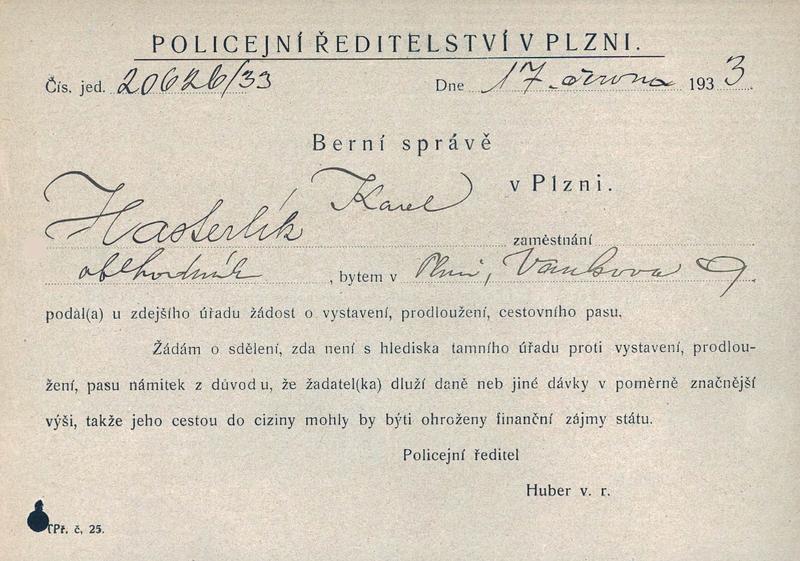 POLICEJNÍ ŘEDITELSTVÍ V PLZNI.
Čís. jed. 20626/33 Dne 17. června 1933.
Berní správě
v Plzni.
Hasterlík Karel
zaměstnání
obchodník, bytem v Plzni, Vaňkova 9
podal(a) u zdejšího úřadu žádost o vystavení, prodloužení, cestovního pasu.
Žádám o sdělení, zda není s hlediska tamního úřadu proti vystavení, prodlou-
žení, pasu námitek z důvodu, že žadatel(ka) dluží daně neb jiné dávky v poměrně značnější
výši, takže jeho cestou do ciziny mohly by býti ohroženy finanční zájmy státu.
Policejní ředitel
Huber v. r.
TPř. č. 25.